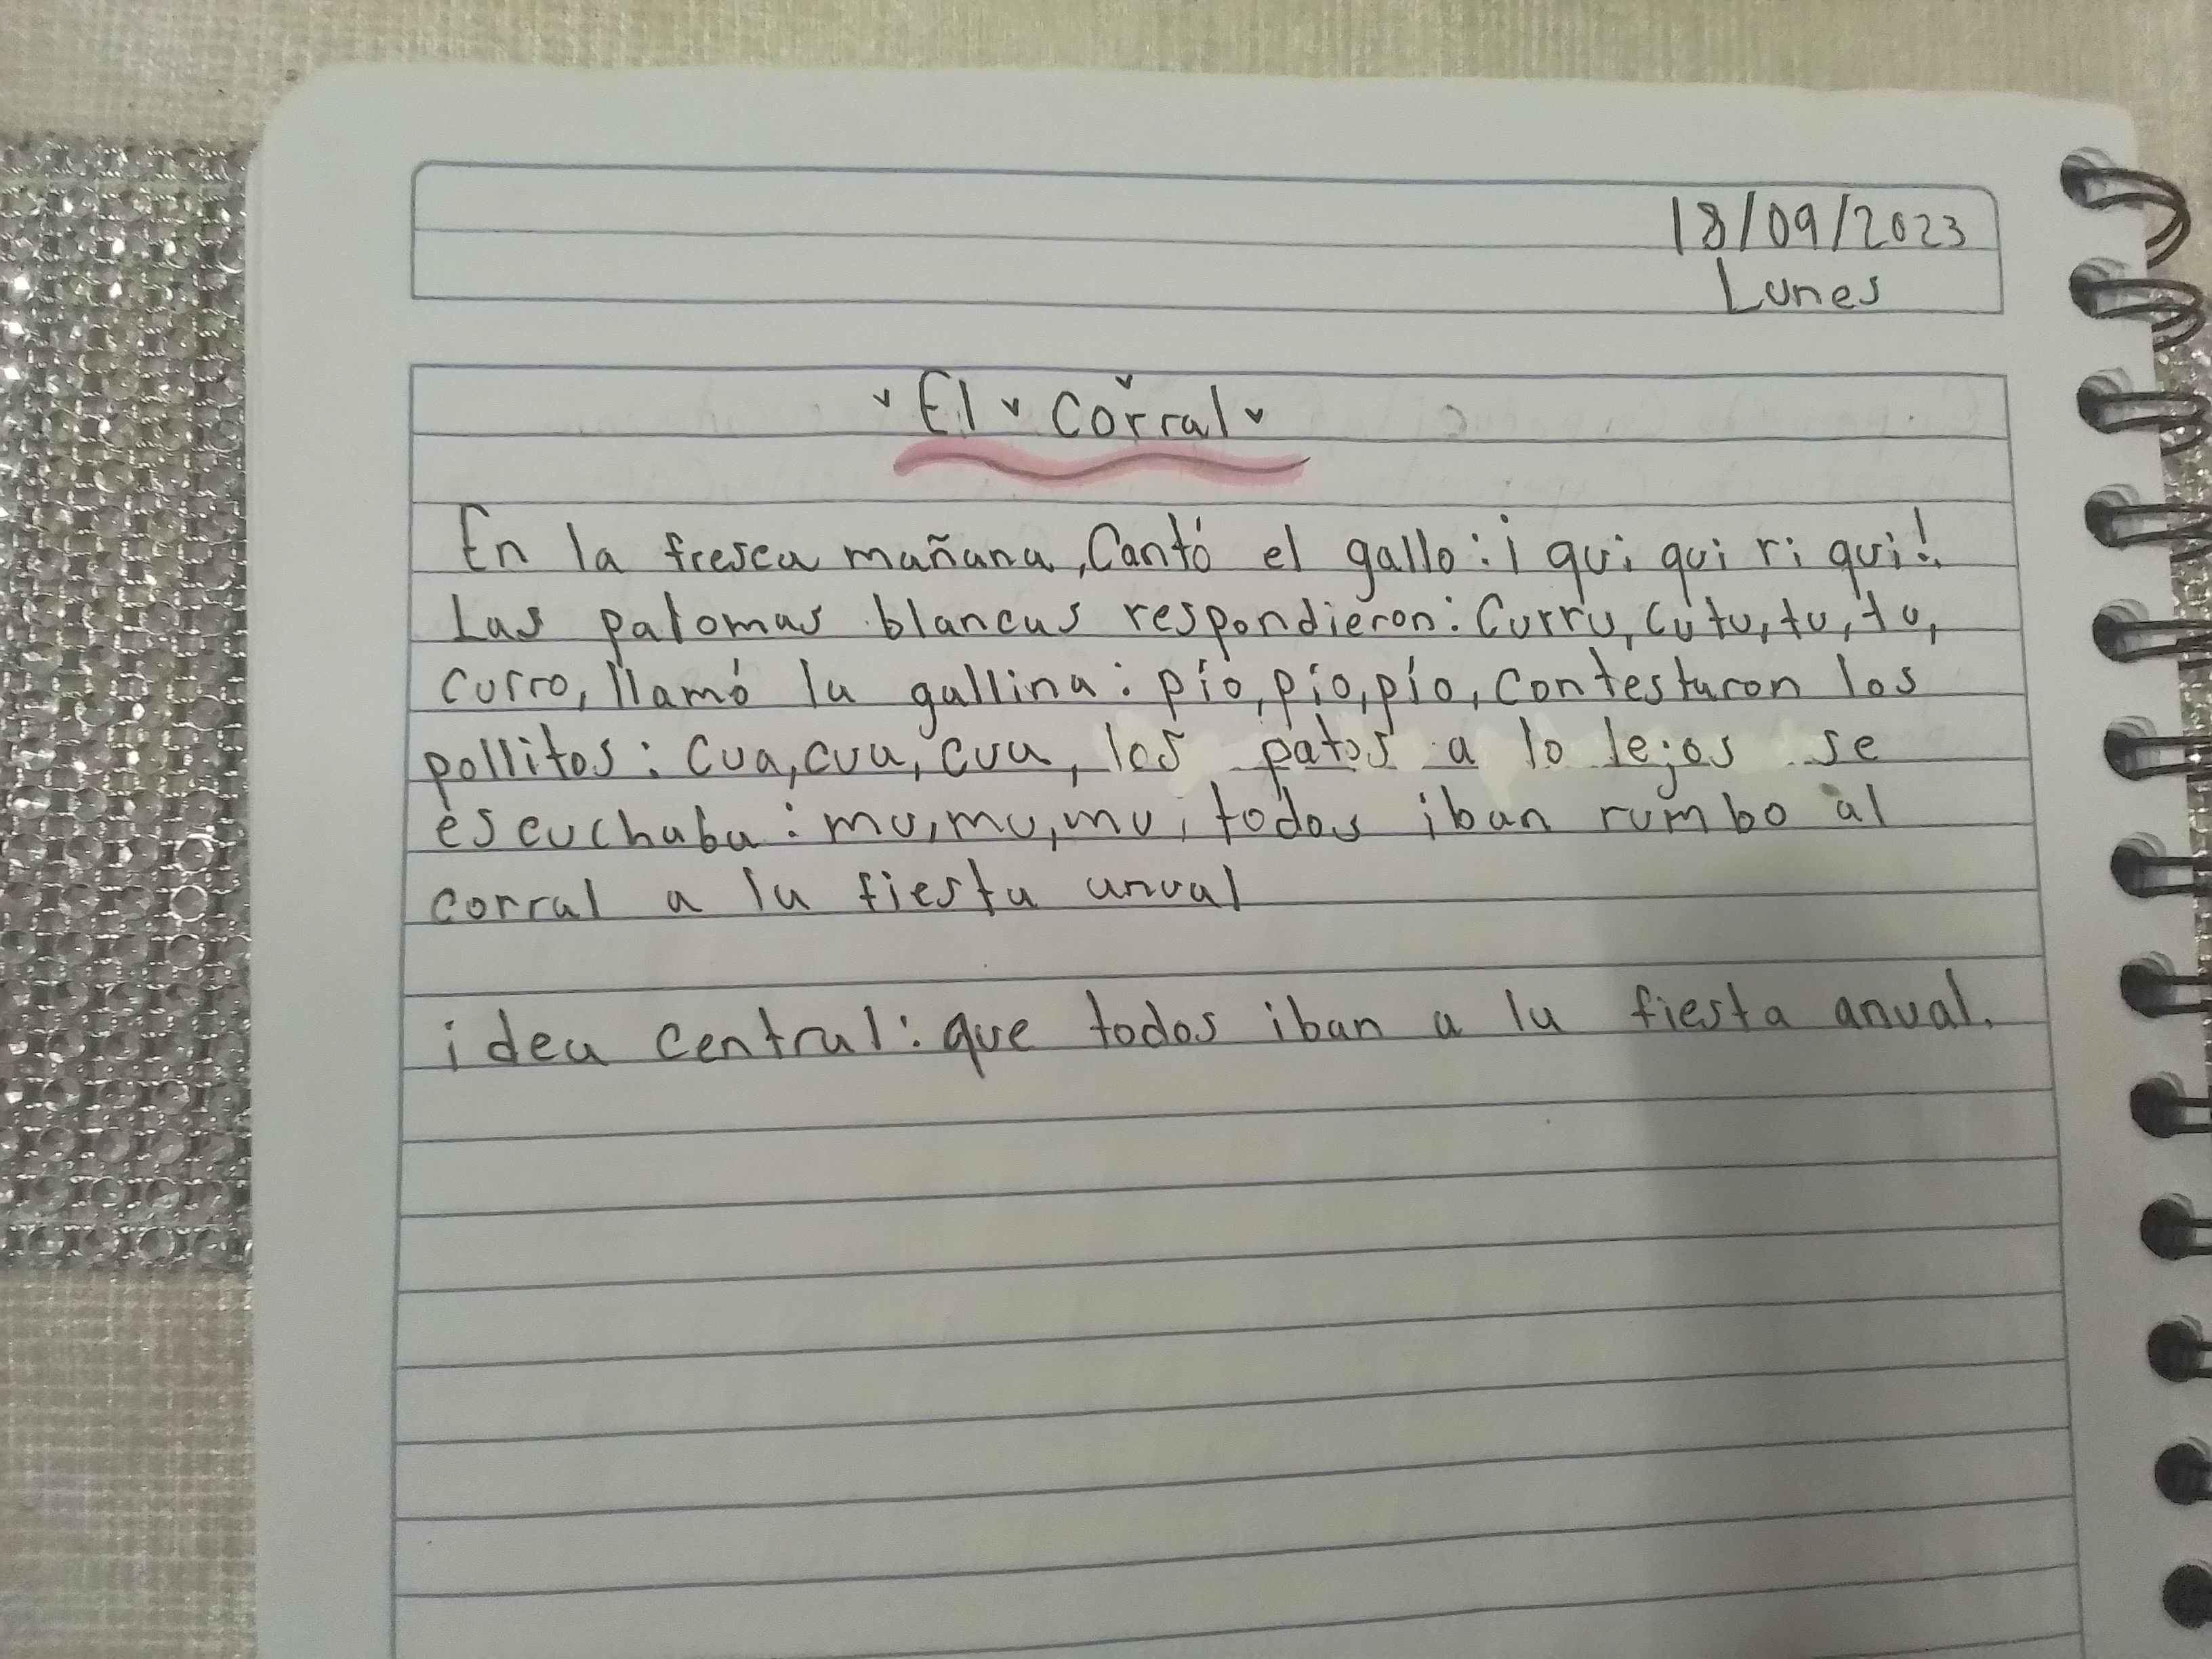 18/09/2023
Lunes
El Corral
En la fresca mañana, Cantó el gallo: ¡qui qui ri qui!.
Las palomas blancas respondieron: Curru, cutu, tu, tu,
curro, llamó la gallina: pío, pío, pío, contestaron los
pollitos: Cua, cua, cua, los patos a lo lejos se
escuchaba: mu, mu, mu, todos iban rumbo al
corral a la fiesta anual
idea central: que todos iban a la fiesta anual.